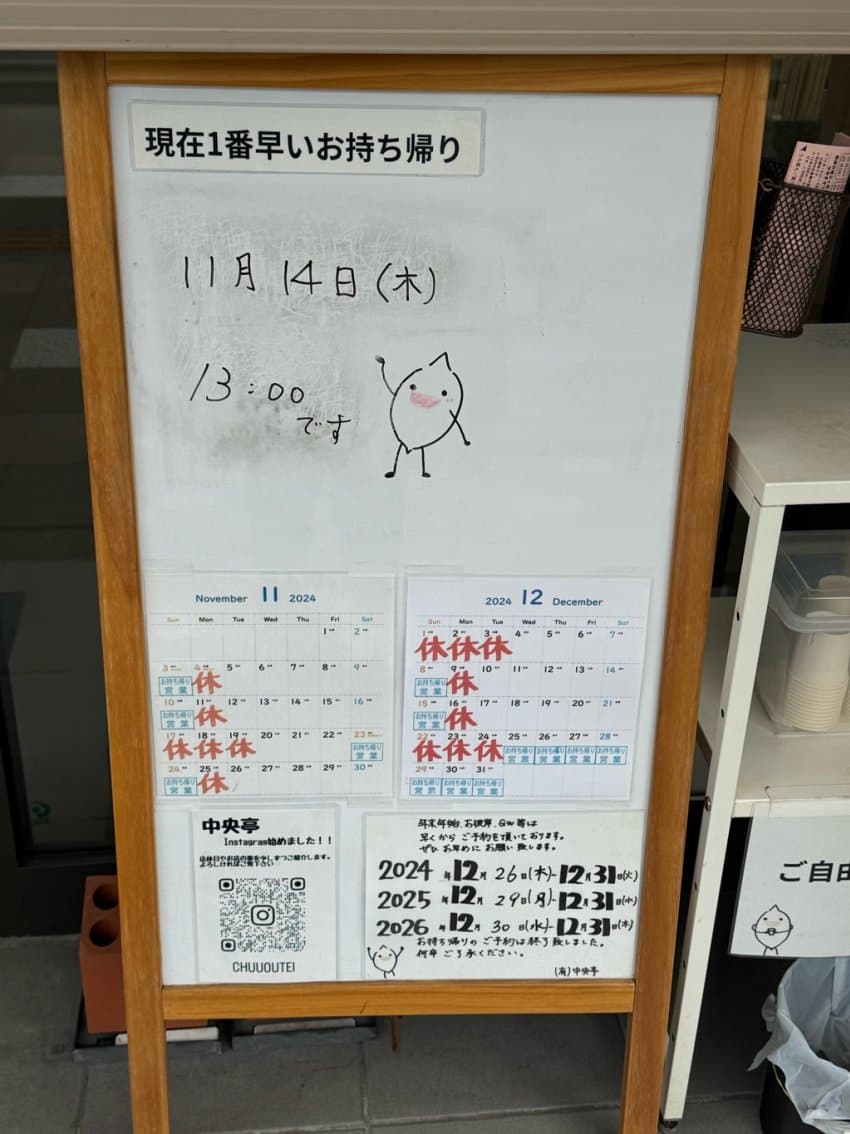 現在1番早いお持ち帰り
11月 14日 (木)
13:00
です
November 11 2024
Sun Mon Tue Wed Thu Fri Sat
1 2
3 4 5 6 7 8 9
お持ち帰り 営業 休
10 11 12 13 14 15 16
お持ち帰り 営業 休
17 18 19 20 21 22 23
休 休 休 お持ち帰り 営業
24 25 26 27 28 29 30
お持ち帰り 営業 休
2024 12 December
Sun Mon Tue Wed Thu Fri Sat
1 2 3 4 5 6 7
休 休 休
8 9 10 11 12 13 14
お持ち帰り 営業 休
15 16 17 18 19 20 21
お持ち帰り 営業 休
22 23 24 25 26 27 28
休 休 休 お持ち帰り 営業 お持ち帰り 営業 お持ち帰り 営業 お持ち帰り 営業
29 30 31
お持ち帰り 営業 お持ち帰り 営業 お持ち帰り 営業
中央亭
Instagram始めました!!
店休日やお店の事を少しずつご紹介します。
よろしければご覧下さい
CHUUOUTEI
年末年始、お彼岸、GW等は
早くから ご予約を頂いております。
ぜひ お早めに お願い致します。
2024年12月26日(木)-12月31日(火)
2025年12月29日(月)-12月31日(水)
2026年12月30日(水)-12月31日(木)
お持ち帰りの ご予約は終了致しました。
何卒 ご了承ください。
(有)中央亭
ご自由